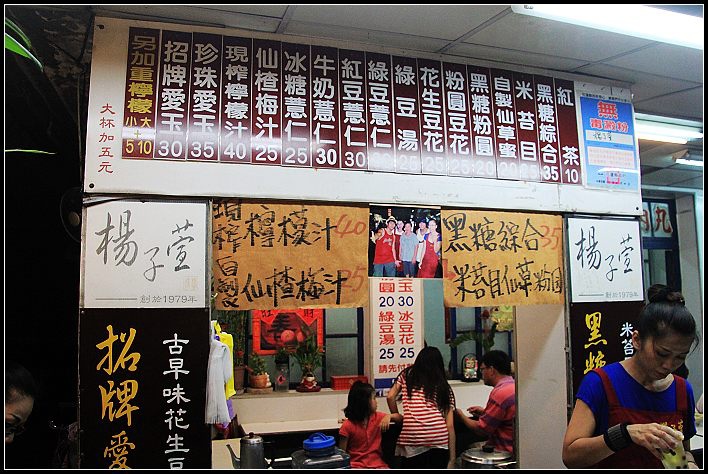 另加重檸檬
小+5
大+10
招牌愛玉 30
珍珠愛玉 35
現榨檸檬汁 40
仙楂梅汁 25
冰糖薏仁 25
牛奶薏仁 30
紅豆薏仁 30
綠豆薏仁 25
綠豆湯 25
花生豆花 25
粉圓豆花
黑糖粉圓
自製仙草蜜
米苔目
黑糖綜合 35
紅茶 10
大杯加五元
現榨檸檬汁 40
自製仙楂梅汁 25
黑糖綜合 35
米苔目仙草粉圓
楊子萱
創於1979年
楊子萱
創於1979年
招牌愛
古早味花生豆
圓玉
20 30
綠冰
豆豆
湯花
25 25
請先付
黑糖
米苔